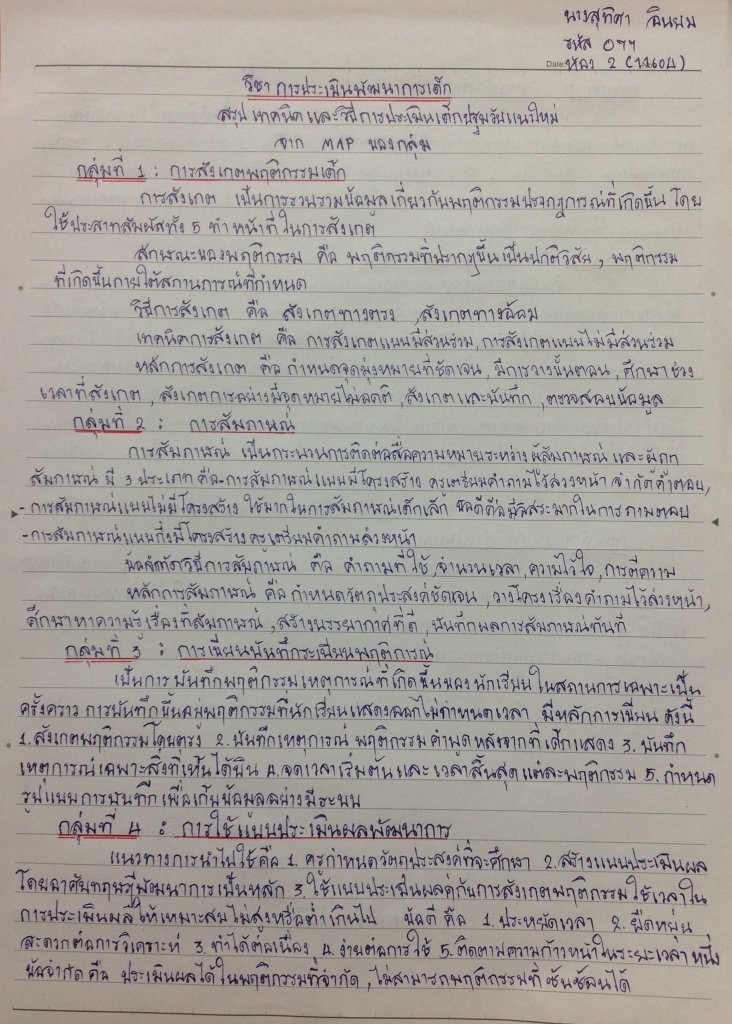 นางสุทิศา อินยม
รหัส 077
Date: ห้อง 2 (11604)
วิชา การประเมินพัฒนาการเด็ก
สรุป เทคนิคและวิธีการประเมินเด็กปฐมวัยแนวใหม่
จาก MAP ของกลุ่ม
กลุ่มที่ 1 : การสังเกตพฤติกรรมเด็ก
การสังเกต เป็นการรวบรวมข้อมูลเกี่ยวกับพฤติกรรมปรากฏการณ์ที่เกิดขึ้น โดย
ใช้ประสาทสัมผัสทั้ง 5 ทำหน้าที่ในการสังเกต
ลักษณะของพฤติกรรม คือ พฤติกรรมที่ปรากฏขึ้นเป็นปกติวิสัย , พฤติกรรม
ที่เกิดขึ้นภายใต้สถานการณ์ที่กำหนด
วิธีการสังเกต คือ สังเกตทางตรง ,สังเกตทางอ้อม
เทคนิคการสังเกต คือ การสังเกตแบบมีส่วนร่วม, การสังเกตแบบไม่มีส่วนร่วม
หลักการสังเกต คือ กำหนดจุดมุ่งหมายที่ชัดเจน , มีการวางขั้นตอน , ศึกษาช่วง
เวลาที่สังเกต , สังเกตการอย่างมีจุดหมายไม่อคติ , สังเกตและบันทึก , ตรวจสอบข้อมูล
กลุ่มที่ 2 : การสัมภาษณ์
การสัมภาษณ์ เป็นกระบวนการติดต่อสื่อความหมายระหว่างผู้สัมภาษณ์ และผู้ถูก
สัมภาษณ์ มี 3 ประเภท คือ - การสัมภาษณ์แบบมีโครงสร้าง ครูเตรียมคำถามไว้ล่วงหน้า จำกัดคำตอบ,
- การสัมภาษณ์แบบไม่มีโครงสร้าง ใช้มากในการสัมภาษณ์เด็กเล็ก ข้อดีคือมีอิสระมากในการถามตอบ
- การสัมภาษณ์แบบกึ่งมีโครงสร้าง ครูเตรียมคำถามล่วงหน้า
ข้อจำกัดวิธีการสัมภาษณ์ คือ คำถามที่ใช้, จำนวนเวลา, ความไว้ใจ, การตีความ
หลักการสัมภาษณ์ คือ กำหนดวัตถุประสงค์ชัดเจน , วางโครงเรื่องคำถามไว้ล่วงหน้า,
ศึกษาหาความรู้เรื่องที่สัมภาษณ์ , สร้างบรรยากาศที่ดี , บันทึกผลการสัมภาษณ์ทันที
กลุ่มที่ 3 : การเขียนบันทึกระเบียนพฤติการณ์
เป็นการบันทึกพฤติกรรมเหตุการณ์ที่เกิดขึ้นของนักเรียน ในสถานการเฉพาะเป็น
ครั้งคราว การบันทึกขึ้นอยู่พฤติกรรมที่นักเรียนแสดงออกไม่กำหนดเวลา มีหลักการเขียน ดังนี้
1. สังเกตพฤติกรรมโดยตรง 2. บันทึกเหตุการณ์ พฤติกรรม คำพูด หลังจากที่เด็กแสดง 3. บันทึก
เหตุการณ์เฉพาะสิ่งที่เห็นได้ยิน 4. จดเวลาเริ่มต้นและเวลาสิ้นสุดแต่ละพฤติกรรม 5. กำหนด
รูปแบบการบันทึก เพื่อเก็บข้อมูลอย่างมีระบบ
กลุ่มที่ 4 : การใช้แบบประเมินผลพัฒนาการ
แนวทางการนำไปใช้คือ 1. ครูกำหนดวัตถุประสงค์ที่จะศึกษา 2. สร้างแบบประเมินผล
โดยอาศัยทฤษฎีพัฒนาการเป็นหลัก 3. ใช้แบบประเมินผลคู่กับการสังเกตพฤติกรรม ใช้เวลาใน
การประเมินผลให้เหมาะสมไม่สูงหรือต่ำเกินไป ข้อดี คือ 1. ประหยัดเวลา 2. ยืดหยุ่น
สะดวกต่อการวิเคราะห์ 3. ทำได้ต่อเนื่อง 4. ง่ายต่อการใช้ 5. ติดตามความก้าวหน้าในระยะเวลาหนึ่ง
ข้อจำกัด คือ ประเมินผลได้ในพฤติกรรมที่จำกัด , ไม่สามารถพฤติกรรมที่ซับซ้อนได้